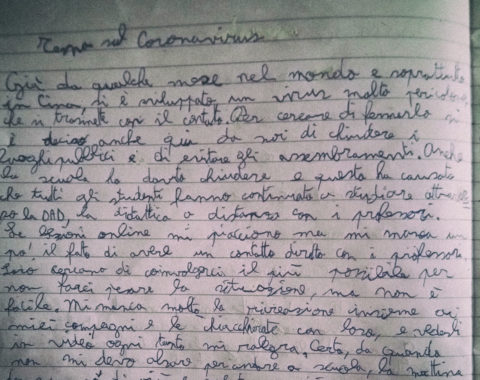 Tema sul Coronavirus
Già da qualche mese nel mondo e soprattutto
in Cina, si è sviluppato un virus molto pericoloso,
che si trasmette con il contatto. Per cercare di fermarlo si
è deciso anche qui da noi di chiudere i
luoghi pubblici e di evitare gli assembramenti. Anche
la scuola ha dovuto chiudere e questo ha causato
che tutti gli studenti hanno continuato a studiare attraver
so la DAD, la didattica a distanza con i professori.
Le lezioni online mi piacciono ma mi manca un
po' il fatto di avere un contatto diretto con i professori.
Loro cercano di coinvolgerci il più possibile per
non farci pesare la situazione, ma non è
facile. Mi manca molto la ricreazione insieme ai
miei compagni e le chiacchierate con loro, e vederli
in video ogni tanto mi rallegra. Certo, da quando
non mi devo alzare per andare a scuola, la mattina